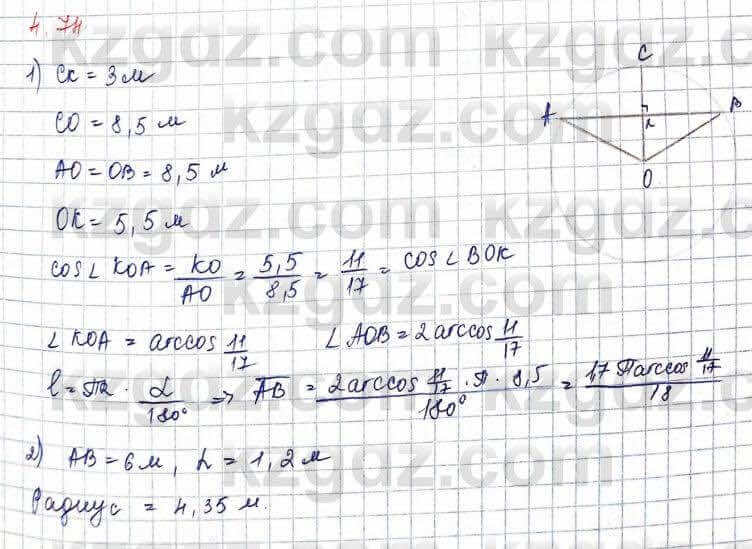 4.74
1) CK = 3 м
CO = 8,5 м
AO = OB = 8,5 м
OK = 5,5 м
cos∠KOA = KO/AO = 5,5/8,5 = 11/17 = cos∠BOK
∠KOA = arccos 11/17   ∠AOB = 2arccos 11/17
l = πr · α/180° => AB = 2arccos 11/17 · π · 8,5 / 180° = 17πarccos 11/17 / 18
2) AB = 6 м, h = 1,2 м
Радиус = 4,35 м.
C
A
B
K
O
kzgdz.com